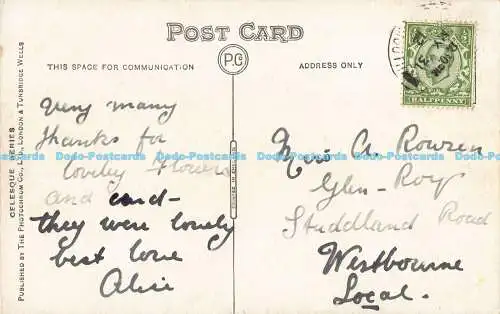 POST CARD
P.C.
THIS SPACE FOR COMMUNICATION
ADDRESS ONLY
HALFPENNY
CELESQUE SERIES
PUBLISHED BY THE PHOTOCHROM CO., LTD., LONDON & TUNBRIDGE WELLS
Very many
thanks for
lovely Flowers
and
they were lovely
best love
Alice
A. Rowren
Glen-Roy
Studdland Road
Westbourne
Local.
Dodo-Postcards Dodo-Postcards Dodo-Postcards Dodo-Postcards Dodo-Postcards